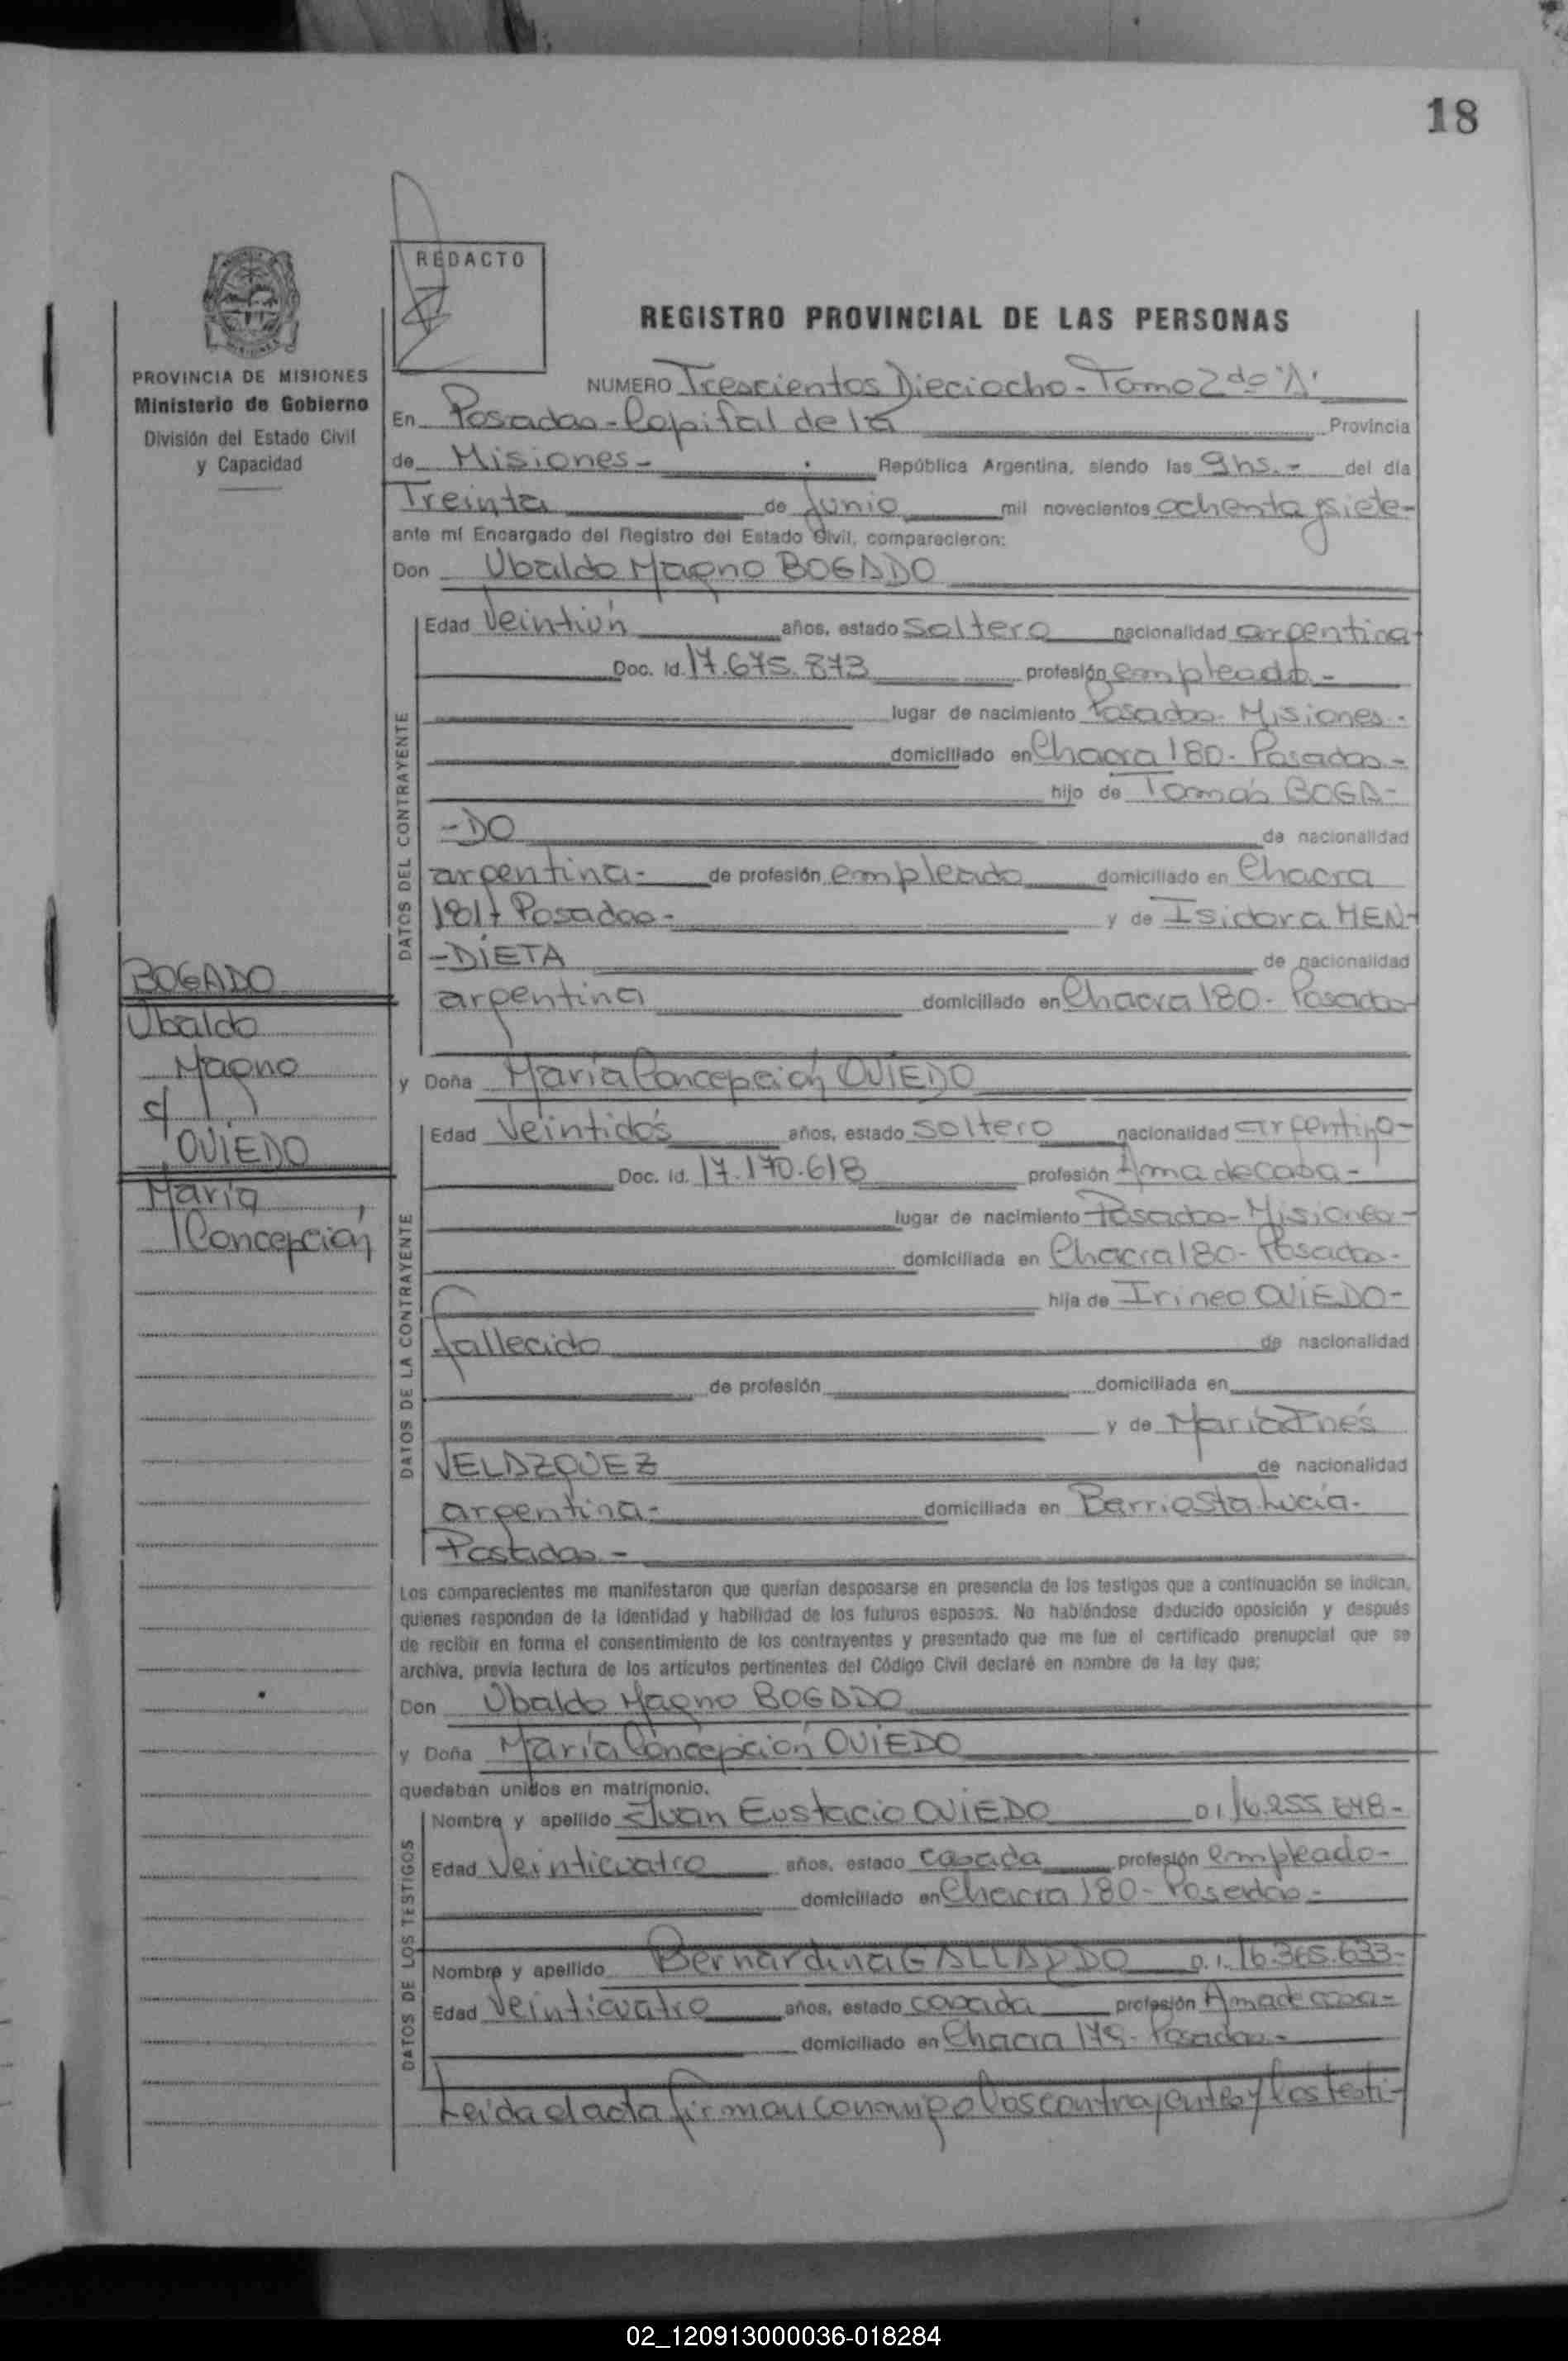 18
REDACTO
REGISTRO PROVINCIAL DE LAS PERSONAS
PROVINCIA DE MISIONES
Ministerio de Gobierno
División del Estado Civil
y Capacidad
NUMERO Trescientos Dieciocho - Tomo 2do "A"
En Posadas - Capital de la Provincia
de Misiones - República Argentina, siendo las 9 hs. - del día
Treinta de Junio mil novecientos ochenta y siete -
ante mí Encargado del Registro del Estado Civil, comparecieron:
Don Ubaldo Magno BOGADO
Edad Veintiún años, estado Soltero nacionalidad argentina
Doc. Id. 17.675.873 profesión empleado -
lugar de nacimiento Posadas - Misiones -
domiciliado en Chacra 180 - Posadas -
hijo de Tomás BOGA-
-DO de nacionalidad
argentina - de profesión empleado domiciliado en Chacra
181 - Posadas - y de Isidora MEN-
-DIETA de nacionalidad
argentina domiciliado en Chacra 180 - Posadas
DATOS DEL CONTRAYENTE
BOGADO
Ubaldo
Magno
c/
OVIEDO
María
Concepción
y Doña María Concepción OVIEDO
Edad Veintidós años, estado Soltero nacionalidad argentina -
Doc. Id. 17.170.618 profesión Ama de casa -
lugar de nacimiento Posadas - Misiones -
domiciliada en Chacra 180 - Posadas -
hija de Irineo OVIEDO -
fallecido de nacionalidad
de profesión domiciliada en
y de María Inés
VELAZQUEZ de nacionalidad
argentina - domiciliada en Barrio Sta. Lucía -
Posadas -
DATOS DE LA CONTRAYENTE
Los comparecientes me manifestaron que querían desposarse en presencia de los testigos que a continuación se indican,
quienes responden de la identidad y habilidad de los futuros esposos. No habiéndose deducido oposición y después
de recibir en forma el consentimiento de los contrayentes y presentado que me fue el certificado prenupcial que se
archiva, previa lectura de los artículos pertinentes del Código Civil declaré en nombre de la ley que:
Don Ubaldo Magno BOGADO
y Doña María Concepción OVIEDO
quedaban unidos en matrimonio.
Nombre y apellido Juan Eustacio OVIEDO D.I. 16.255.648 -
Edad Veinticuatro años, estado casada profesión empleado -
domiciliado en Chacra 180 - Posadas -
Nombre y apellido Bernardina GALLARDO D.I. 16.365.633 -
Edad Veinticuatro años, estado casada profesión Ama de casa -
domiciliado en Chacra 179 - Posadas -
DATOS DE LOS TESTIGOS
Leida el acta firman conmigo los contrayentes y los testi-
02_120913000036-018284